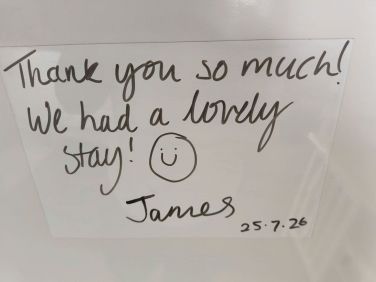 Thank you so much!
We had a lovely
stay!
James
25.7.26